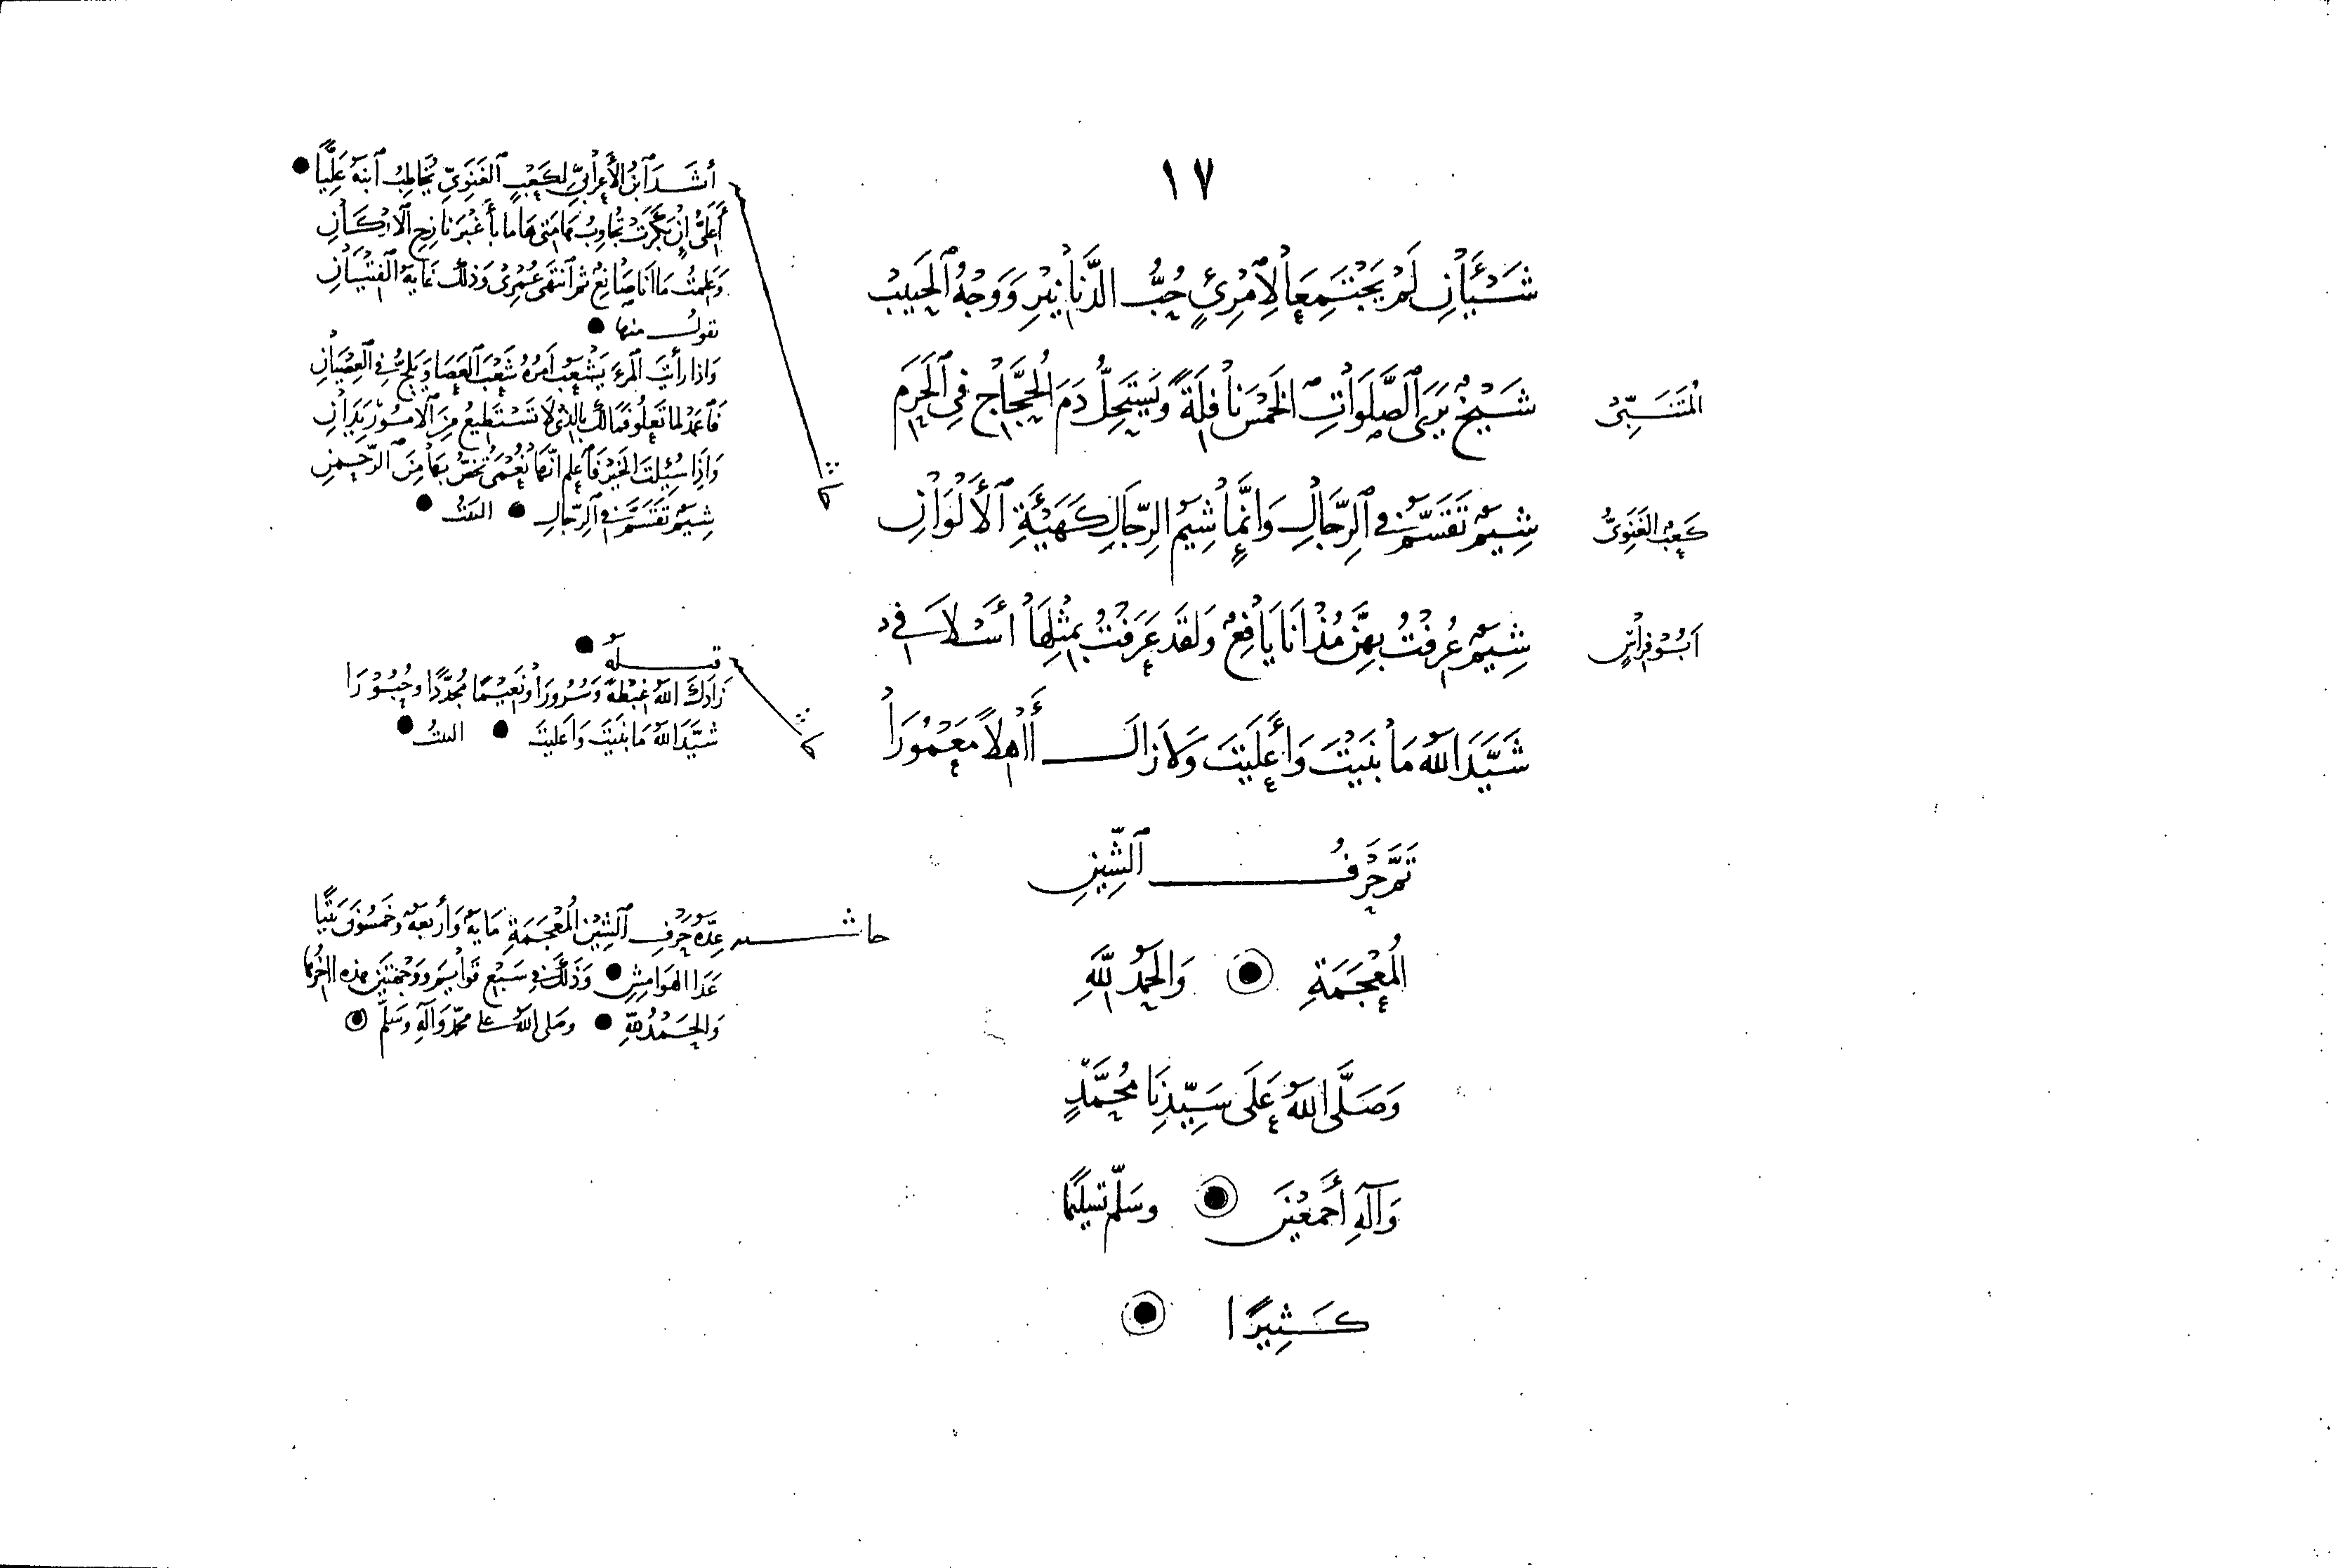 ١٧
شَيْئَانِ لَمْ يَجْتَمِعَا لِامْرِئٍ حُبُّ الدَّنَانِيْرِ وَوَجْهُ الْحَبِيبْ
الْمُتَنَبِّيْ
شَيْخٌ يَرَى الصَّلَوَاتِ الْخَمْسَ نَافِلَةً وَيَسْتَحِلُّ دَمَ الْحُجَّاجِ فِي الْحَرَمِ
كَعْبُ الغَنَوِيُّ
شِيَمٌ تَقَسَّمُ فِي الرِّجَالِ وَإِنَّمَا شِيَمُ الرِّجَالِ كَهَيْئَةِ الْأَلْوَانِ
أَبُوْ فِرَاسٍ
شِيَمٌ عُرِفْتُ بِهِنَّ مُذْ أَنَا يَافِعٌ وَلَقَدْ عَرَفْتُ بِمِثْلِهَا أَسْلَافِي
شَيَّدَ اللَّهُ مَا بَنَيْتَ وَأَعْلَيْتَ وَلَا زَالَ أَهِلًا مَعْمُورَا
تَمَّ حَرْفُ الشِّينِ
الْمُعْجَمَةِ وَالْحَمْدُ لِلَّهِ
وَصَلَّى اللَّهُ عَلَى سَيِّدِنَا مُحَمَّدٍ
وَآلِهِ أَجْمَعِيْنَ وَسَلَّمَ تَسْلِيمًا
كَثِيرًا
أَنْشَدَ ابْنُ الأَعْرَابِيِّ لِكَعْبٍ الغَنَوِيّ يُخَاطِبُ ابْنَهُ عَلِيًّا
أَعَلِيُّ إِنْ بَكَرَتْ تُجَاوِبُ هَامَتِي هَامًا بِأَغْبَرَ نَازِحِ الْأَرْكَانِ
وَعَلِمْتَ مَا أَنَا صَانِعٌ ثُمَّ انْتَهَى عُمُرِيْ وَذَلِكَ غَايَةُ الْفِتْيَانِ
تقول منها
وَإِذَا رَأَيْتَ الْمَرْءَ يَشْعَبُ أَمْرَهُ شَعْبَ الْعَصَا وَيَلِجُّ فِي الْعِصْيَانِ
فَاعْمِدْ لِمَا تَعْلُو فَمَا لَكَ بِالَّذِي لَا تَسْتَطِيعُ مِنَ الْأُمُوْرِ يَدَانِ
وَإِذَا سُئِلْتَ الْخَيْرَ فَاعْلَمْ أَنَّهَا نُعْمَى تُخَصُّ بِهَا مِنَ الرَّحْمنِ
شِيَمٌ تَقَسَّمُ فِي الرِّجَالِ البيت
قبله
زَادَكَ اللَّهُ غِبْطَةً وَسُرُورًا وَنَعِيْمًا مُجَدَّدًا وَحُبُوْرَا
شَيَّدَ اللَّهُ مَا بَنَيْتَ وَأَعْلَيْتَ البيت
حاشية
عِدَّةُ حَرْفِ الشِّيْنِ الْمُعْجَمَةِ مَايَةٌ وَأَرْبَعَةٌ وَخَمْسُوْنَ بَيْتًا
عَدَا الهَوَامِشِ وَذَلِكَ فِي سَبْعِ وَوَجْهَتَيْنِ هذه
وَالْحَمْدُ لِلَّهِ وصلى الله على محمّد وَآلِهِ وَسَلَّمَ